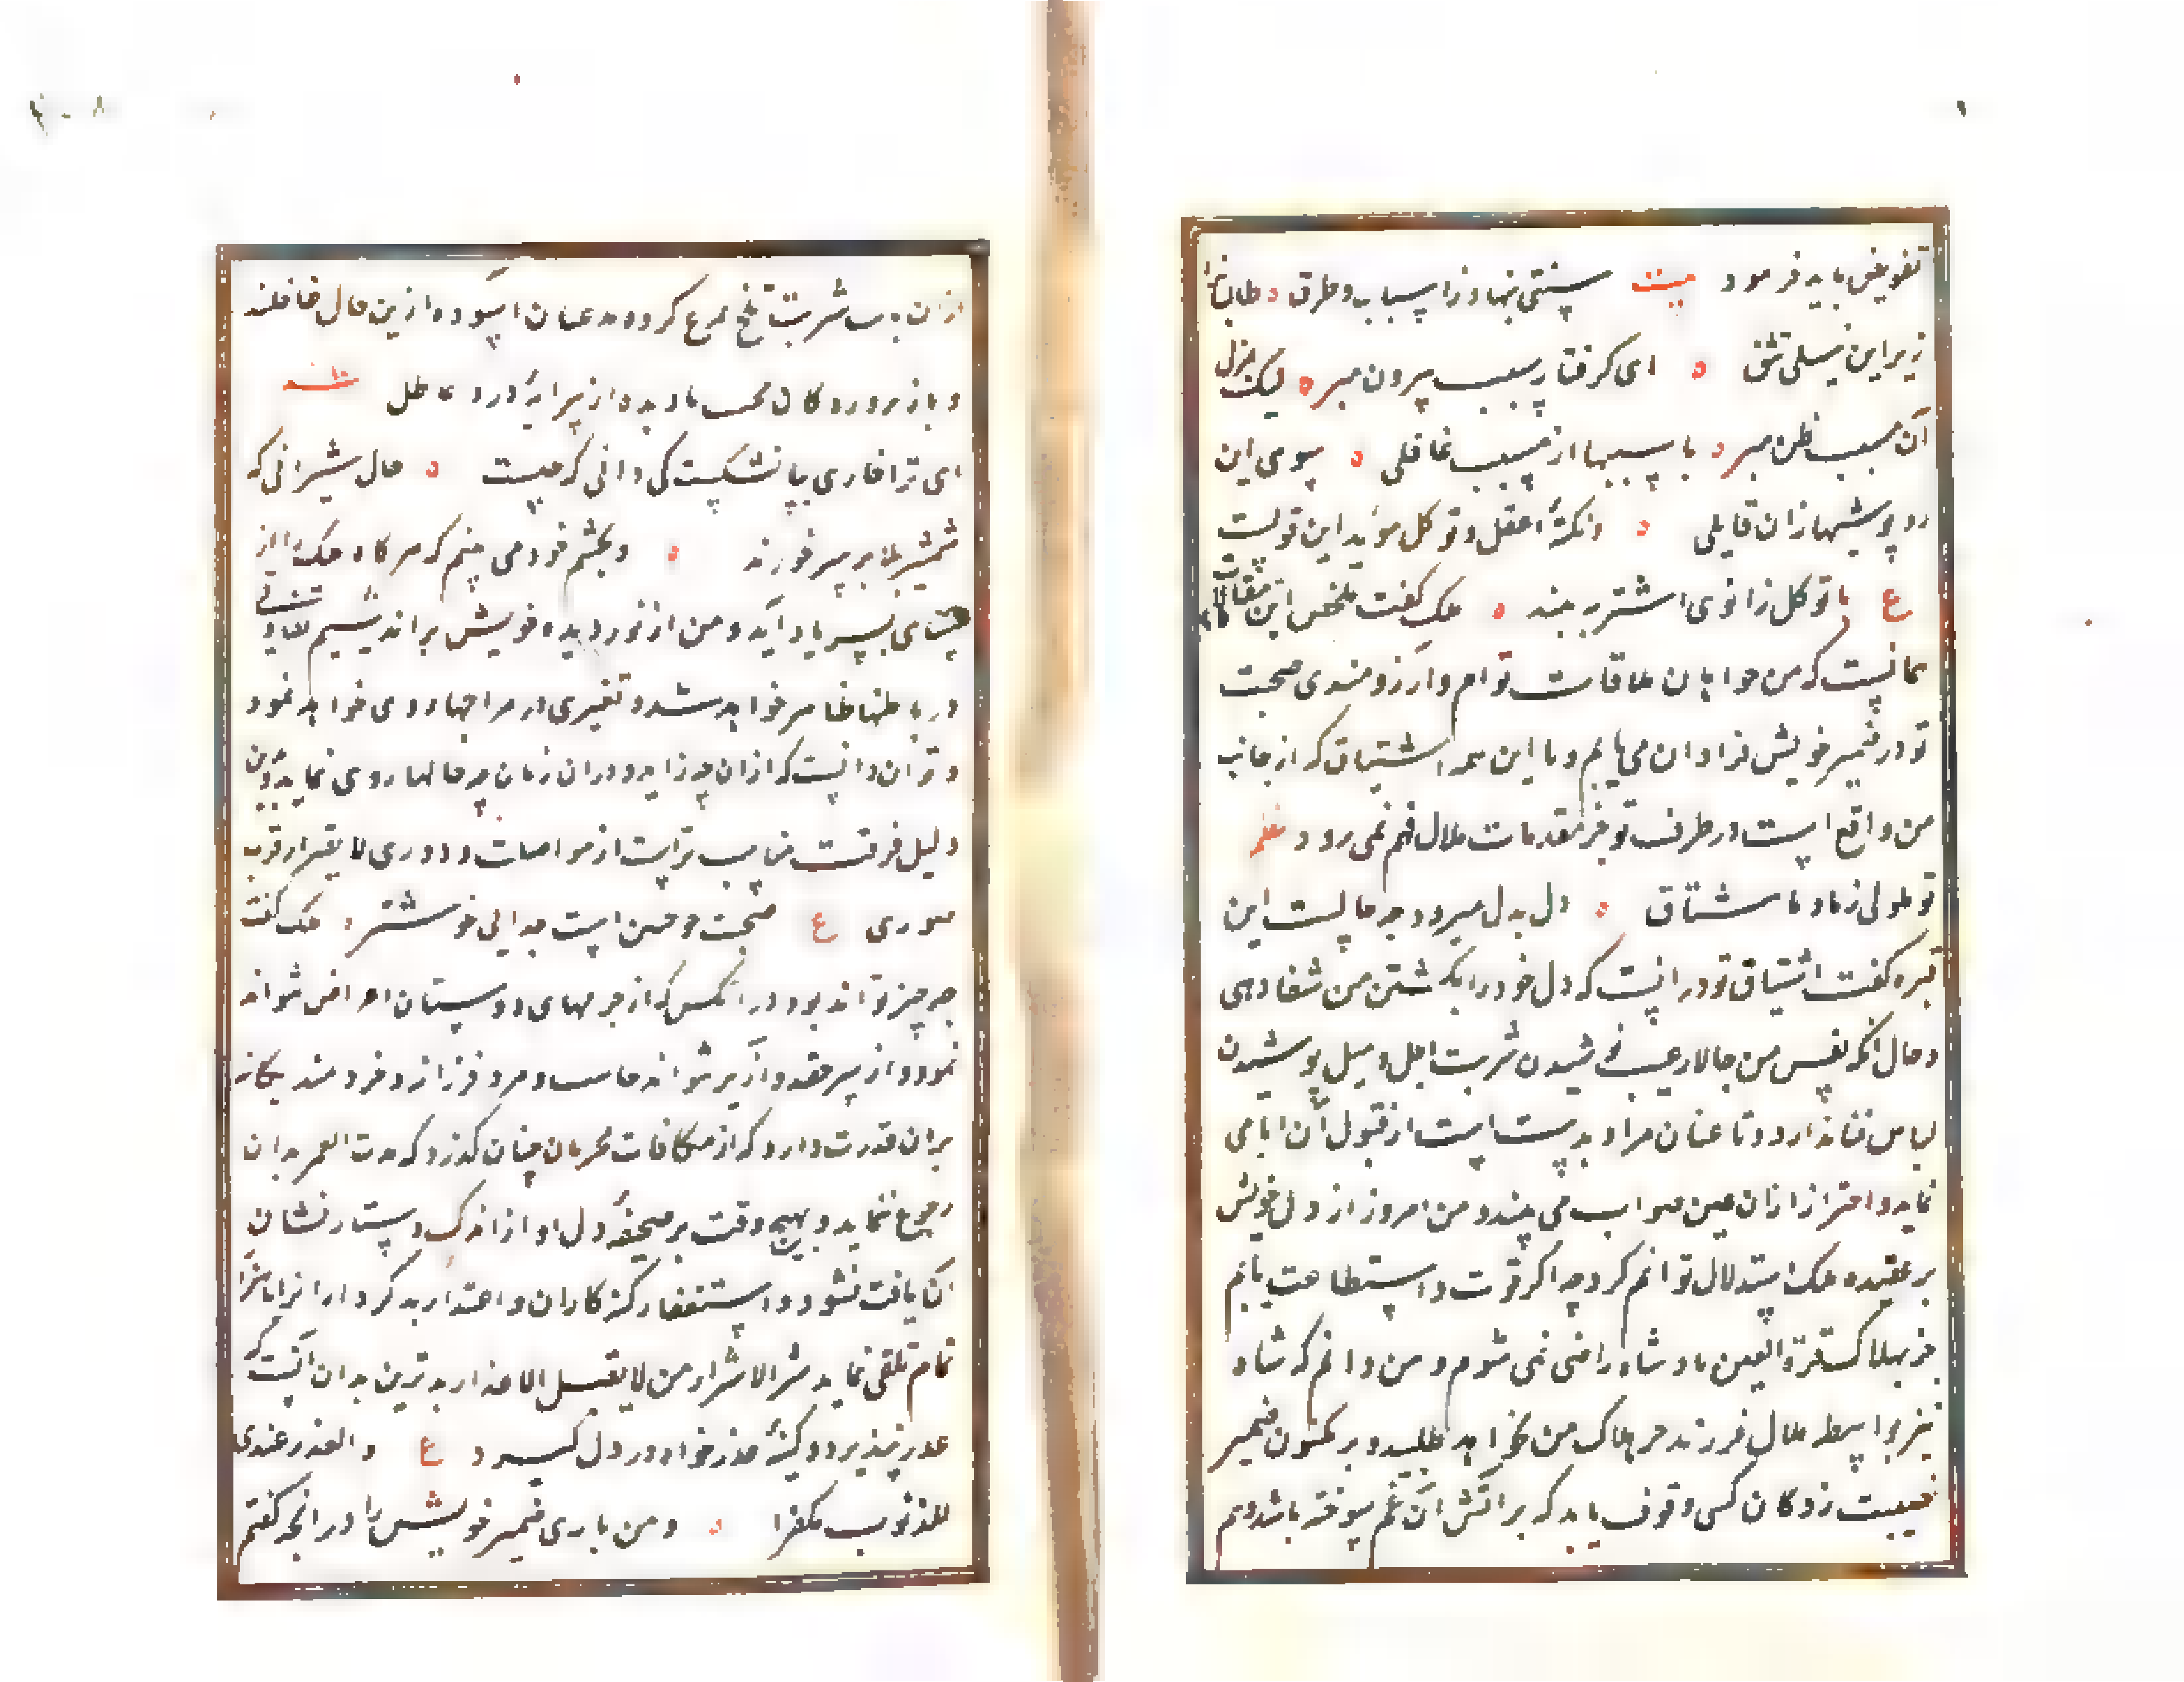 تفویض باید فرمود بیت سنتی بنهاد و اسباب و طرق طالبانرا
زیر این نیلی تتق ای گرفتار سبب بیرون مپر لیک عزل
آن مسبب ظن مبر با سببها از مسبب غافلی سوی این
روپوشها زان مایلی و نکتهٔ اعقل و توکل مؤید این قولست
ع با توکل زانوی اشتر ببند ملک گفت ملخص این مقالات
همانست که من خواهان ملاقات توام و آرزومندی صحبت
تو در ضمیر خویش فراوان می یابم و با این همه اشتیاق که از جانب
من واقع است در طرف تو جز مقدمات ملال فهم نمی رود نظم
تو ملولی ز ما و ما مشتاق دل بدل میرود چه حالست این
قبره گفت اشتیاق تو در آنست که دل خود را بکشتن من شفا دهی
و حال آنکه نفس من حالا رغبت نوشیدن شربت اجل و میل پوشیدن
لباس فنا ندارد و تا عنان مراد بدست است از قبول آن ابا می
نماید و احتراز ازان عین صواب می بیند و من امروز از دل خویش
بر عقیده ملک استدلال توانم کرد چه اگر قوت و استطاعت یابم
جز بهلاک قرة العین پادشاه راضی نمی شوم و من دانم که شاه
نیز بواسطه ملال فرزند جز هلاک من نخواهد طلبید و بر مکنون ضمیر
مصیبت زدگان کسی وقوف یابد که بر آتش آن غم سوخته باشد و هم
ازان شربت تلخ جرع کرده مدعیان آسوده ازین حال غافلند
ای ترا خاری بپا نشکست کی دانی که چیست حال شیرانی که
شمشیر بلا بر سر خورند و بچشم خود می بینم که هرگاه ملک را از
بینائی پسر یاد آید و من از نور دیده خویش براندیشم تفاوتی
در باطنها ظاهر خواهد شد و تغییری در مزاجها روی خواهد نمود
و توان دانست که ازان چه زاید و دران زمان چه حالها روی نماید و بدین
دلیل فرقت مناسب تراست از مواصلت و دوری لایقتر از قرب
صوری ع صحبت چو چنین است جدایی خوشتر ملک گفت
چه چیز تواند بود در آنکس که از جرمهای دوستان اعراض نتواند
نمود و از سر حقد و آزار بر نتواند خاست و مرد فرزانه و خردمند یگانه
بران قدرت دارد که از مکافات مجرمان چنان گذرد که مدت العمر بدان
رجوع ننماید و بهیچ وقت بر صحیفهٔ دل او از اندک و بسیار نشان
آن یافت نشود و استغفار گنه کاران و اعتذار بد کرداران را باهتزاز
تمام تلقی نماید شر الاشرار من لا یقبل الاعذار بدترین بدان آنست که
عذر نپذیرد و کینهٔ عذرخواه در دل گیرد ع و العذر عندی
للذنوب مکفرا و من باری ضمیر خویش را در آنچه گفتم